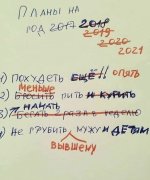 Планы на
год 2017 2018
2019
2020
2021
1) похудеть ещё!! опять
меньше
2) бросить пить и курить
начать
3) бегать 2 раза в неделю
4) не грубить мужу и детям
бывшему